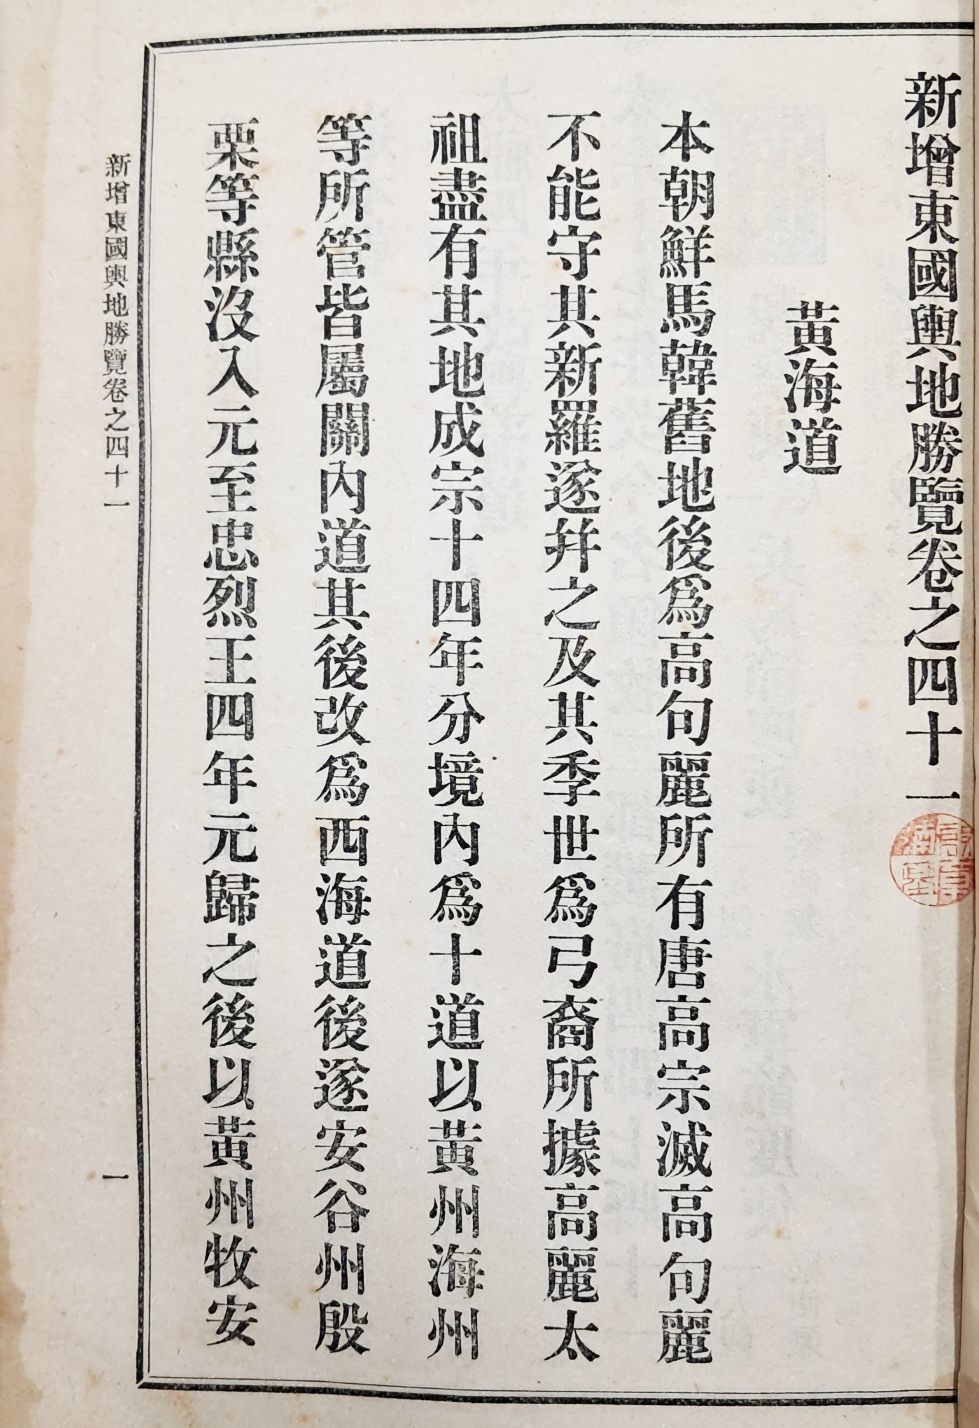 新增東國輿地勝覽卷之四十一
黃海道
本朝鮮馬韓舊地後爲高句麗所有唐高宗滅高句麗
不能守其新羅遂幷之及其季世爲弓裔所據高麗太
祖盡有其地成宗十四年分境內爲十道以黃州海州
等所管皆屬關內道其後改爲西海道後遂安谷州殷
栗等縣沒入元至忠烈王四年元歸之後以黃州牧安
新增東國輿地勝覽卷之四十一
一